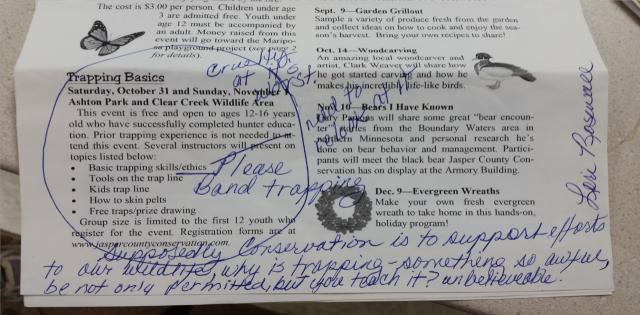 The cost is $3.00 per person. Children under age
3 are admitted free. Youth under
age 12 must be accompanied by
an adult. Money raised from this
event will go toward the Maripo-
sa playground project (see page 2
for details).
Trapping Basics
Saturday, October 31 and Sunday, November 1
Ashton Park and Clear Creek Wildlife Area
This event is free and open to ages 12-16 years
old who have successfully completed hunter educa-
tion. Prior trapping experience is not needed to at-
tend this event. Several instructors will present on
topics listed below:
• Basic trapping skills/ethics
• Tools on the trap line
• Kids trap line
• How to skin pelts
• Free traps/prize drawing
Group size is limited to the first 12 youth who
register for the event. Registration forms are at
www.jaspercountyconservation.com
cruelty
at its
worst
no need to
at it
Please
Band trapping
Sept. 9—Garden Grillout
Sample a variety of produce fresh from the garden
and collect ideas on how to cook and enjoy the sea-
son's harvest. Bring your own recipes to share!
Oct. 14—Woodcarving
An amazing local woodcarver and
artist, Clark Weaver will share how
he got started carving and how he
makes his incredible life-like birds.
Nov. 10—Bears I Have Known
Parkins will share some great "bear encoun-
ter" stories from the Boundary Waters area in
northern Minnesota and personal research he's
done on bear behavior and management. Partici-
pants will meet the black bear Jasper County Con-
servation has on display at the Armory Building.
Dec. 9—Evergreen Wreaths
Make your own fresh evergreen
wreath to take home in this hands-on,
holiday program!
Rosewall
Supposedly Conservation is to support efforts
to our wildlife, why is trapping-something so awful,
be not only permitted, but you teach it? unbelieveable.